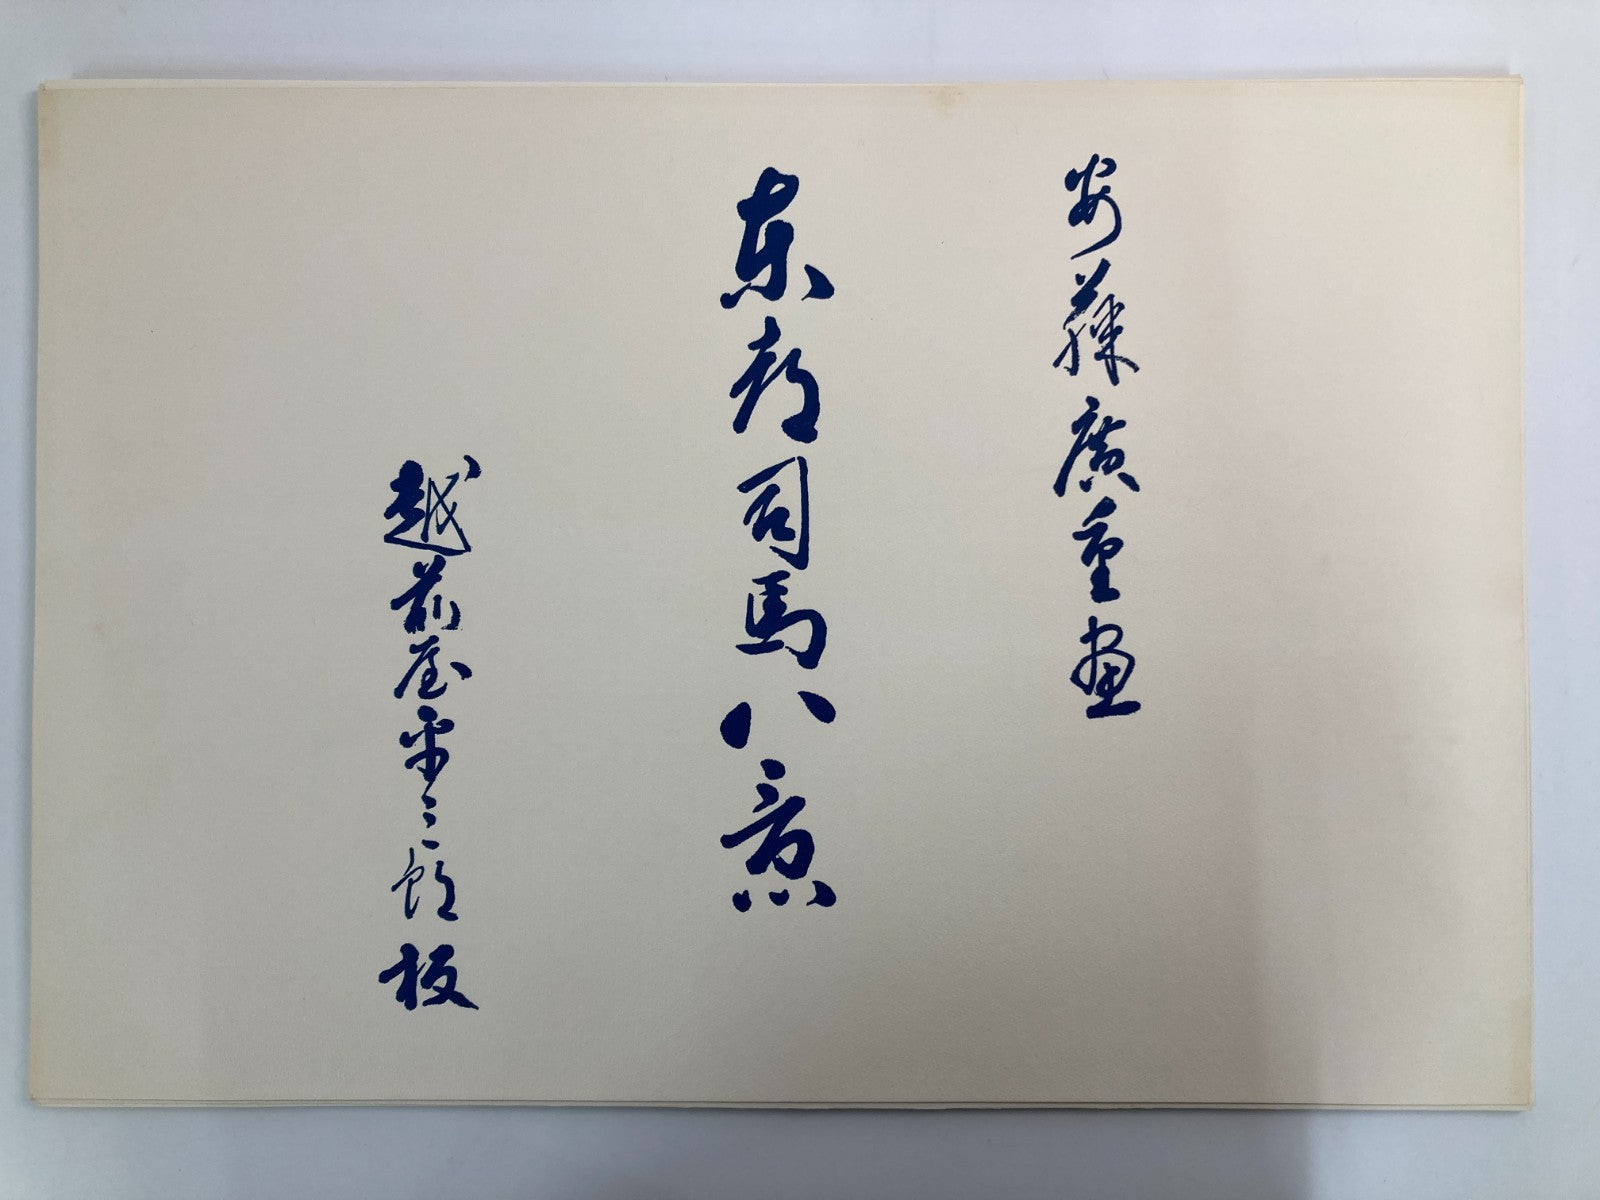 安藤廣重画
東都司馬八景
越前屋平三郎板